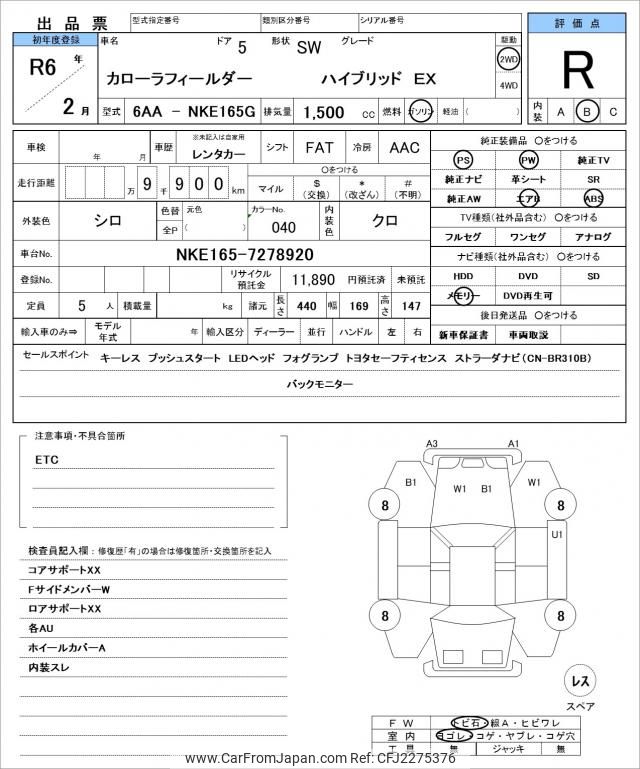 出品票
型式指定番号
類別区分番号
シリアル番号
評価点
R
初年度登録
R6 年
2 月
車名
ドア 5
形状 SW
グレード
カローラフィールダー ハイブリッド EX
駆動
2WD
4WD
型式 6AA - NKE165G
排気量 1,500 cc
燃料 ガソリン 軽油 ( )
内装 A B C
車検 年 月
車歴 ※未記入は自家用
レンタカー
シフト FAT
冷房 AAC
走行距離 万 9 千 9 0 0 km
〇をつける
マイル
$ (交換)
* (改ざん)
# (不明)
外装色 シロ
色替 元色
全P ( )
カラーNo.
040
内装色 クロ
車台No. NKE165-7278920
登録No.
リサイクル預託金 11,890 円預託済 未預託
定員 5 人
積載量 kg
諸元 長さ 440 幅 169 高さ 147
輸入車のみ⇒ モデル年式 年 輸入区分 ディーラー 並行 ハンドル 左 右
純正装備品 〇をつける
PS PW 純正TV
純正ナビ 革シート SR
純正AW エアB ABS
TV種類(社外品含む) 〇をつける
フルセグ ワンセグ アナログ
ナビ種類(社外品含む) 〇をつける
HDD DVD SD
メモリー DVD再生可
後日発送品 〇をつける
新車保証書 車両取説
セールスポイント キーレス プッシュスタート LEDヘッド フォグランプ トヨタセーフティセンス ストラーダナビ(CN-BR310B)
バックモニター
注意事項・不具合箇所
ETC
検査員記入欄 : 修復歴「有」の場合は修復箇所・交換箇所を記入
コアサポートXX
FサイドメンバーW
ロアサポートXX
各AU
ホイールカバーA
内装スレ
A3 A1
B1 W1 B1 W1
8 8
U1
8 8
レス
スペア
FW トビ石・線A・ヒビワレ
室内 ヨゴレ・コゲ・ヤブレ・コゲ穴
工具 無 ジャッキ 無
www.CarFromJapan.com Ref:CFJ2275376